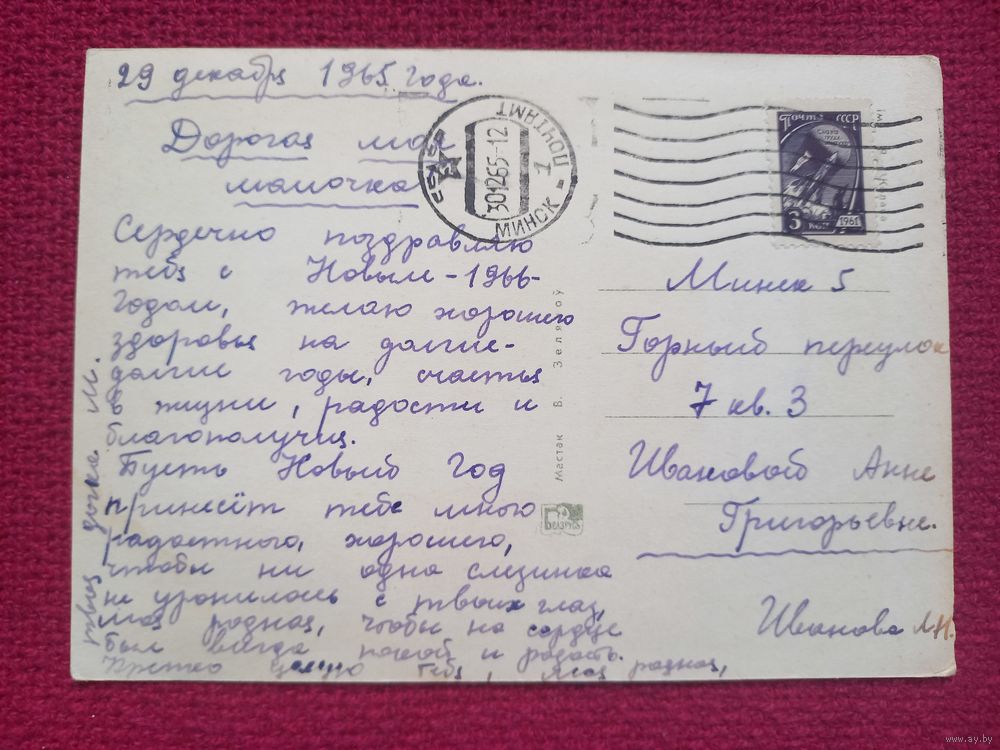 29 декабря 1965 года.
Дорогая моя
мамочка
Сердечно поздравляю
тебя с Новым-1966-
годом, желаю хорошего
здоровья на долгие-
долгие годы, счастья
в жизни, радости и
благополучия.
Пусть Новый Год
принесёт тебе много
радостного, хорошего,
чтобы ни одна слезинка
не уронилась с твоих глаз,
моя родная, чтобы на сердце
был всегда покой и радость.
Крепко целую тебя, моя родная,
твоя дочка М.
СССР
ПОЧТАМТ
1
30.12.65-12
МИНСК
Почта СССР
Слава
6 коп
1961
Мастак В. Зеляноў
БЕЛАРУСЬ
Минск 5
Горный переулок
7 кв. 3
Ивановой Анне
Григорьевне.
Иванова
www.ay.by